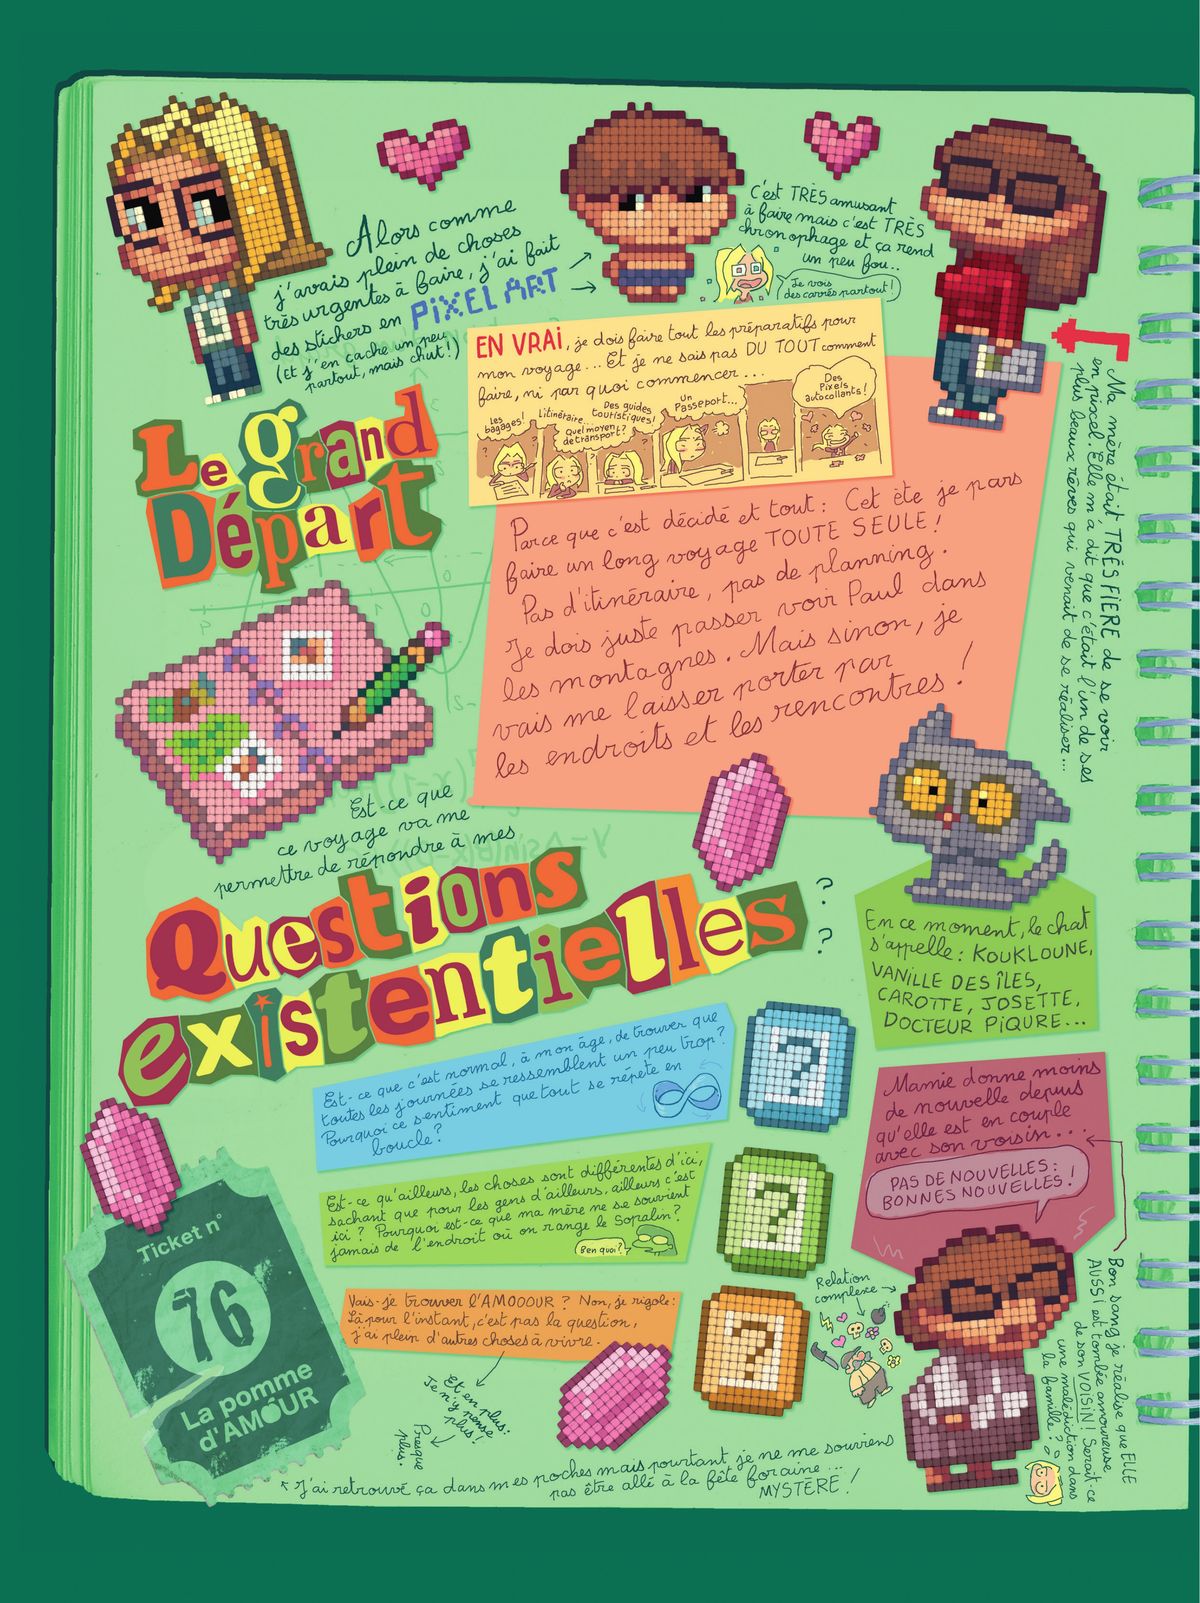 Alors comme
j'avais plein de choses
très urgentes à faire, j'ai fait
des stickers en PIXEL ART
(Et j'en cache un peu
partout, mais chut!)
C'est TRÈS amusant
à faire mais c'est TRÈS
chronophage et ça rend
un peu fou..
Je vois
des carrés partout!
EN VRAI, je dois faire tout les préparatifs pour
mon voyage... Et je ne sais pas DU TOUT comment
faire, ni par quoi commencer...
Les
bagages!
L'itinéraire...
Quel moyen
de transport?
Des guides
touristiques!
Un
Passeport...
Des
Pixels
autocollants!
Ma mère était TRÈS FIERE de se voir
en pixsel. Elle m'a dit que c'était l'un de ses
plus beaux rêves qui venait de se réaliser...
Le grand
Départ
Parce que c'est décidé et tout: Cet été je pars
faire un long voyage TOUTE SEULE!
Pas d'itinéraire, pas de planning.
Je dois juste passer voir Paul dans
les montagnes. Mais sinon, je
vais me laisser porter par
les endroits et les rencontres!
Est-ce que
ce voyage va me
permettre de répondre à mes
Questions
existentielles
?
?
En ce moment, le chat
s'appelle: KOUKLOUNE,
VANILLE DES ÎLES,
CAROTTE, JOSETTE,
DOCTEUR PIQURE...
Est-ce que c'est normal, à mon âge, de trouver que
toutes les journées se ressemblent un peu trop?
Pourquoi ce sentiment que tout se répète en
boucle?
?
Est-ce qu'ailleurs, les choses sont différentes d'ici,
sachant que pour les gens d'ailleurs, ailleurs c'est
ici? Pourquoi est-ce que ma mère ne se souvient
jamais de l'endroit où on range le Sopalin?
Ben quoi?
?
Vais-je trouver l'AMOOOUR? Non, je rigole:
Là pour l'instant, c'est pas la question,
j'ai plein d'autres choses à vivre.
?
Et en plus:
Je n'y pense
plus!
Presque
plus.
Mamie donne moins
de nouvelle depuis
qu'elle est en couple
avec son voisin...
PAS DE NOUVELLES:
BONNES NOUVELLES!
Relation
complexe
Bon sang, je réalise que ELLE
AUSSI est tombée amoureuse
de son VOISIN! Serait-ce
une malédiction dans
la famille?
Ticket n°
76
La pomme
d'AMOUR
J'ai retrouvé ça dans mes poches mais pourtant, je ne me souviens
pas être allé à la fête foraine...
MYSTÈRE!